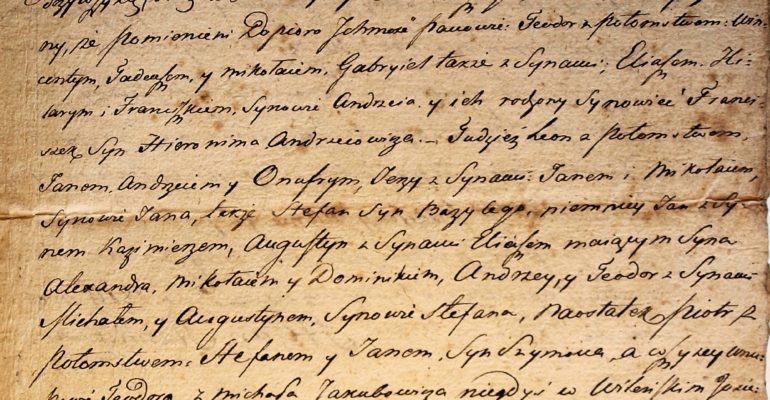 ny, że pomienieni Dopioro Jchmość panowie: Teodor z potomstwem: Win-
centym, Tadeuszem, y Mikołaiem, Gabryiel także z Synami: Eliaszem. Hi-
larym i Franciszkiem, Synowie Andrzeia y ich rodzony Synowiec Franci-
szek Syn Hieronima Andrzeiowicza. – Tudzież Leon z potomstwem,
Janem, Andrzeiem y Onufrym, Jerzy z Synami: Janem i Mikołaiem,
Synowie Jana, także Stefan Syn Bazylego, niemniey Jan z Sy-
nem Kazimierzem, Augustyn z Synami Eliaszem maiącym Syna
Alexandra, Mikołaiem y Dominikiem, Andrzey, y Teodor z Synami
Michałem, y Augustynem, Synowie Stefana, Naostatek Piotr z
potomstwem: Stefanem y Janem, Syn Szymona, a wszyscy wnu-
Teodora z Michała Jakubowicza niegdyś w Wileńskim